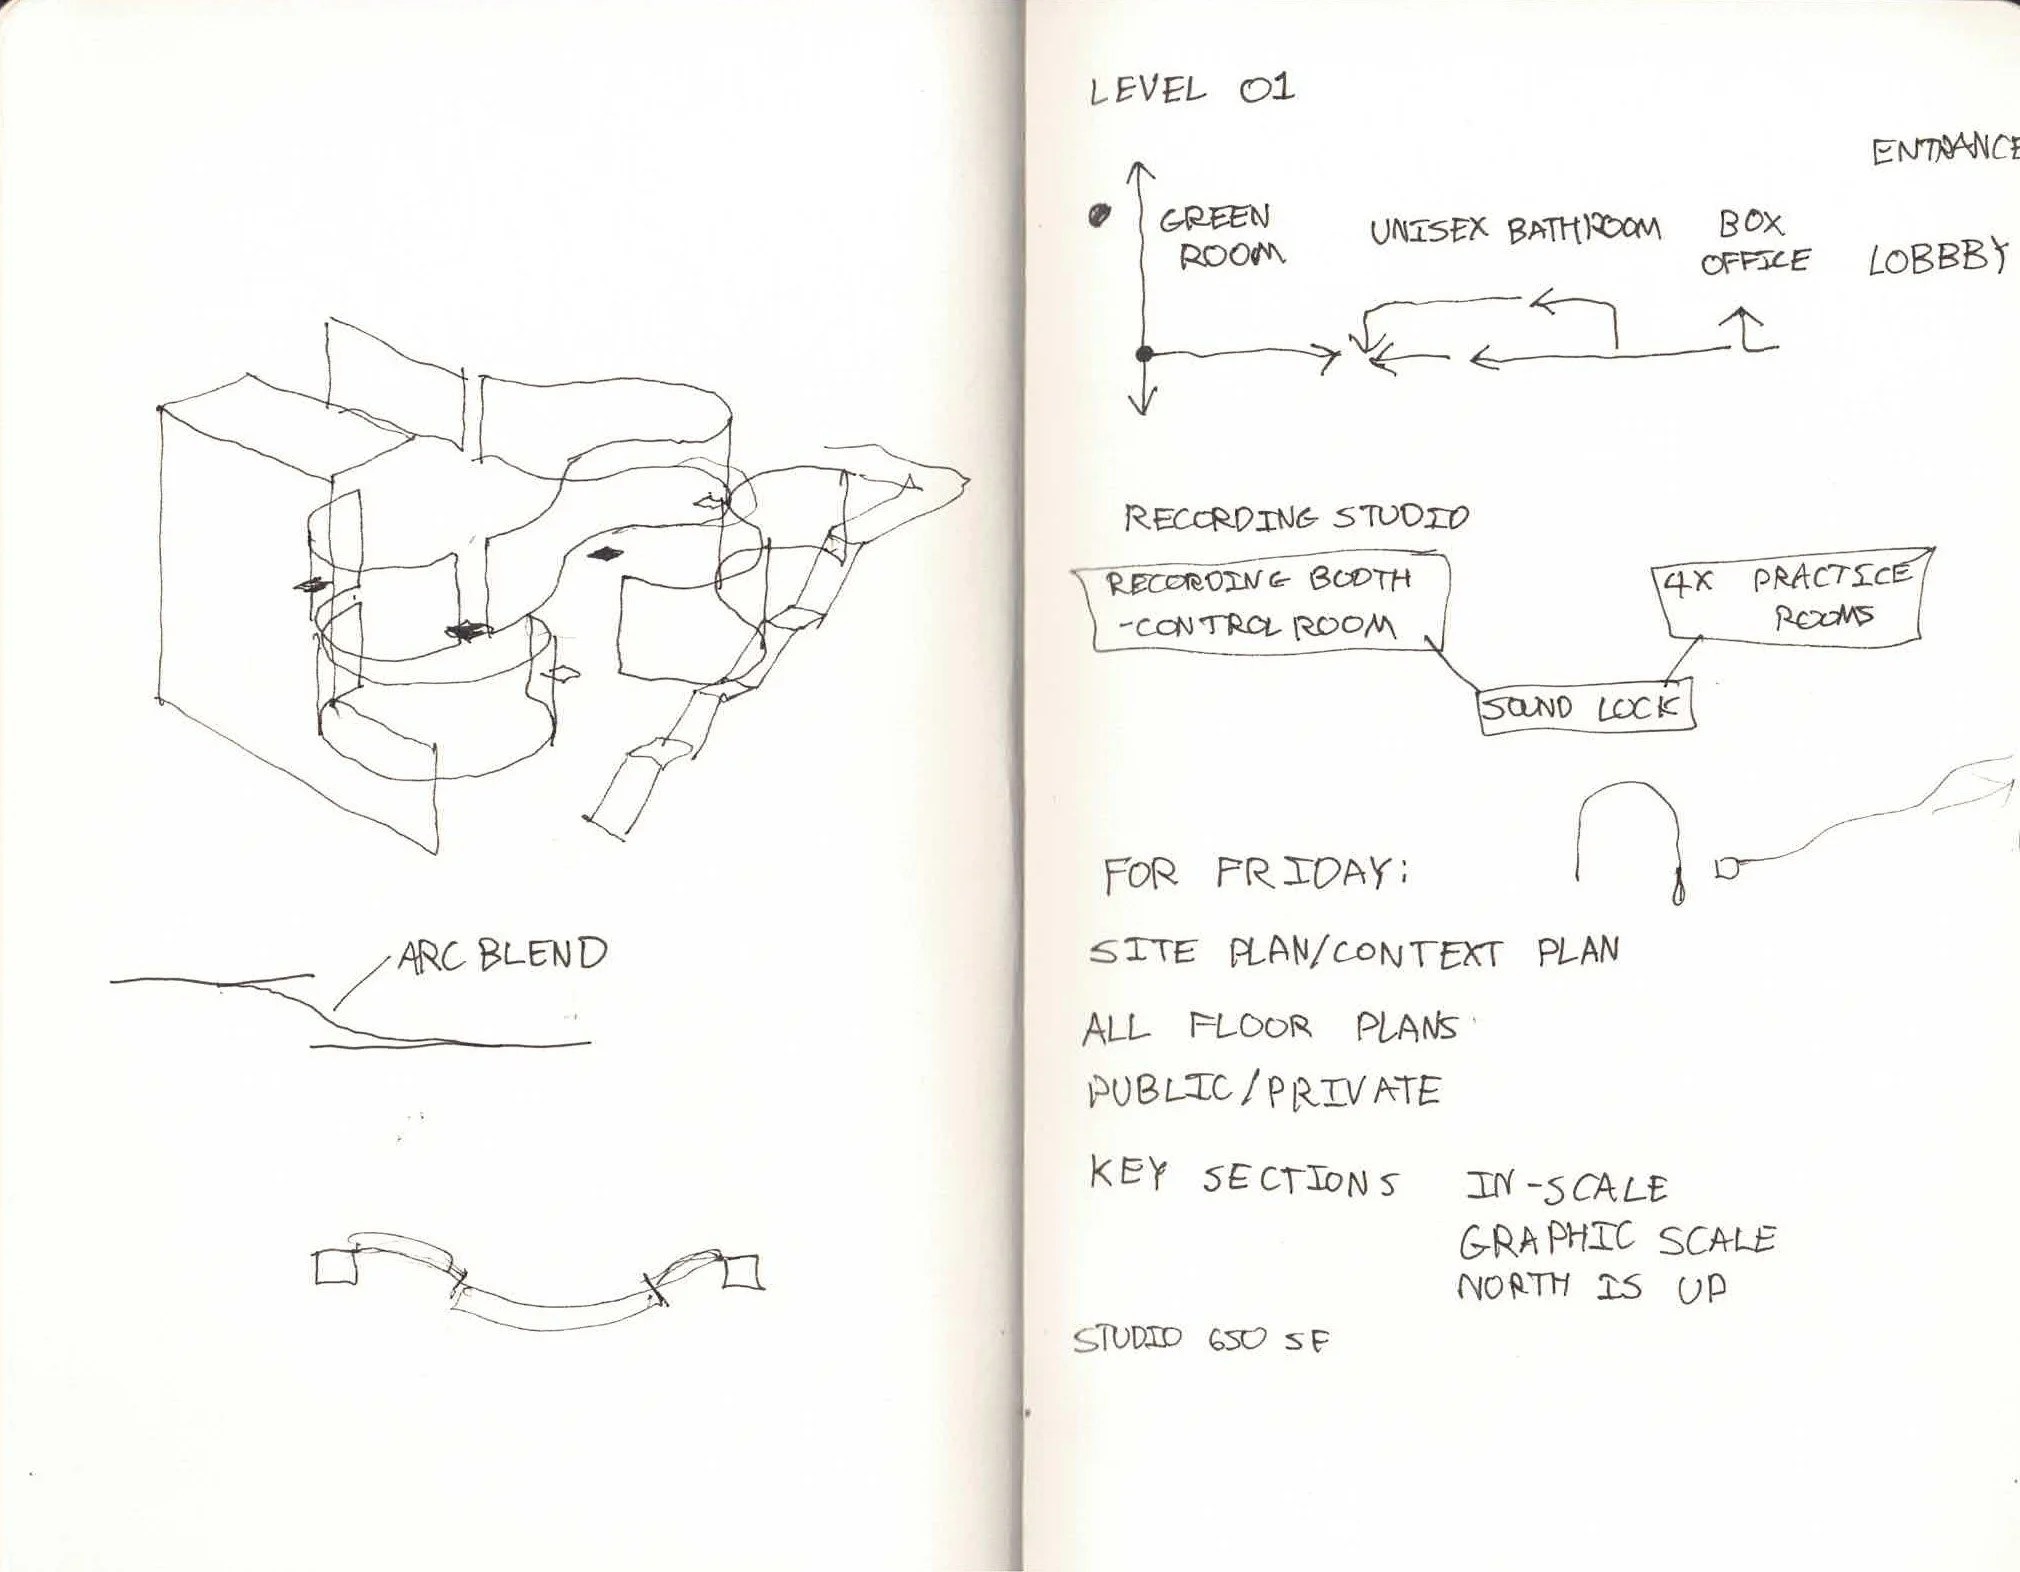 ARC BLEND
LEVEL 01
ENTRANCE
GREEN
ROOM
UNISEX BATHROOM
BOX
OFFICE
LOBBBY
RECORDING STUDIO
RECORDING BOOTH
-CONTROL ROOM
4X PRACTICE
ROOMS
SOUND LOCK
FOR FRIDAY:
SITE PLAN/CONTEXT PLAN
ALL FLOOR PLANS
PUBLIC/PRIVATE
KEY SECTIONS
IN-SCALE
GRAPHIC SCALE
NORTH IS UP
STUDIO 650 SF